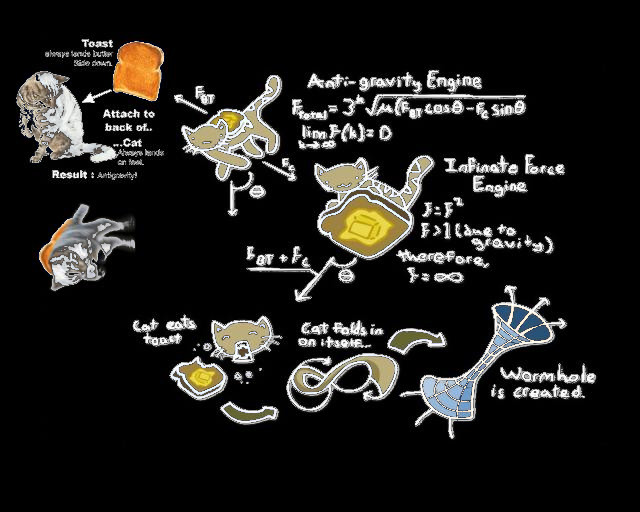 Toast
always lands butter
Side down.
Attach to
back of..
...Cat
Always lands
on feet.
Result : Antigravity!
F_BT
F_c
θ
Anti-gravity Engine
F_total = 3^μ√μ(F_BT cosθ - F_c sinθ
lim F(k) = 0
k→∞
Infinate Force
Engine
F = F²
F > 1 (due to
gravity)
therefore,
F = ∞
F_BT + F_c
θ
Cat eats
toast
Cat folds in
on itself...
Wormhole
is created.